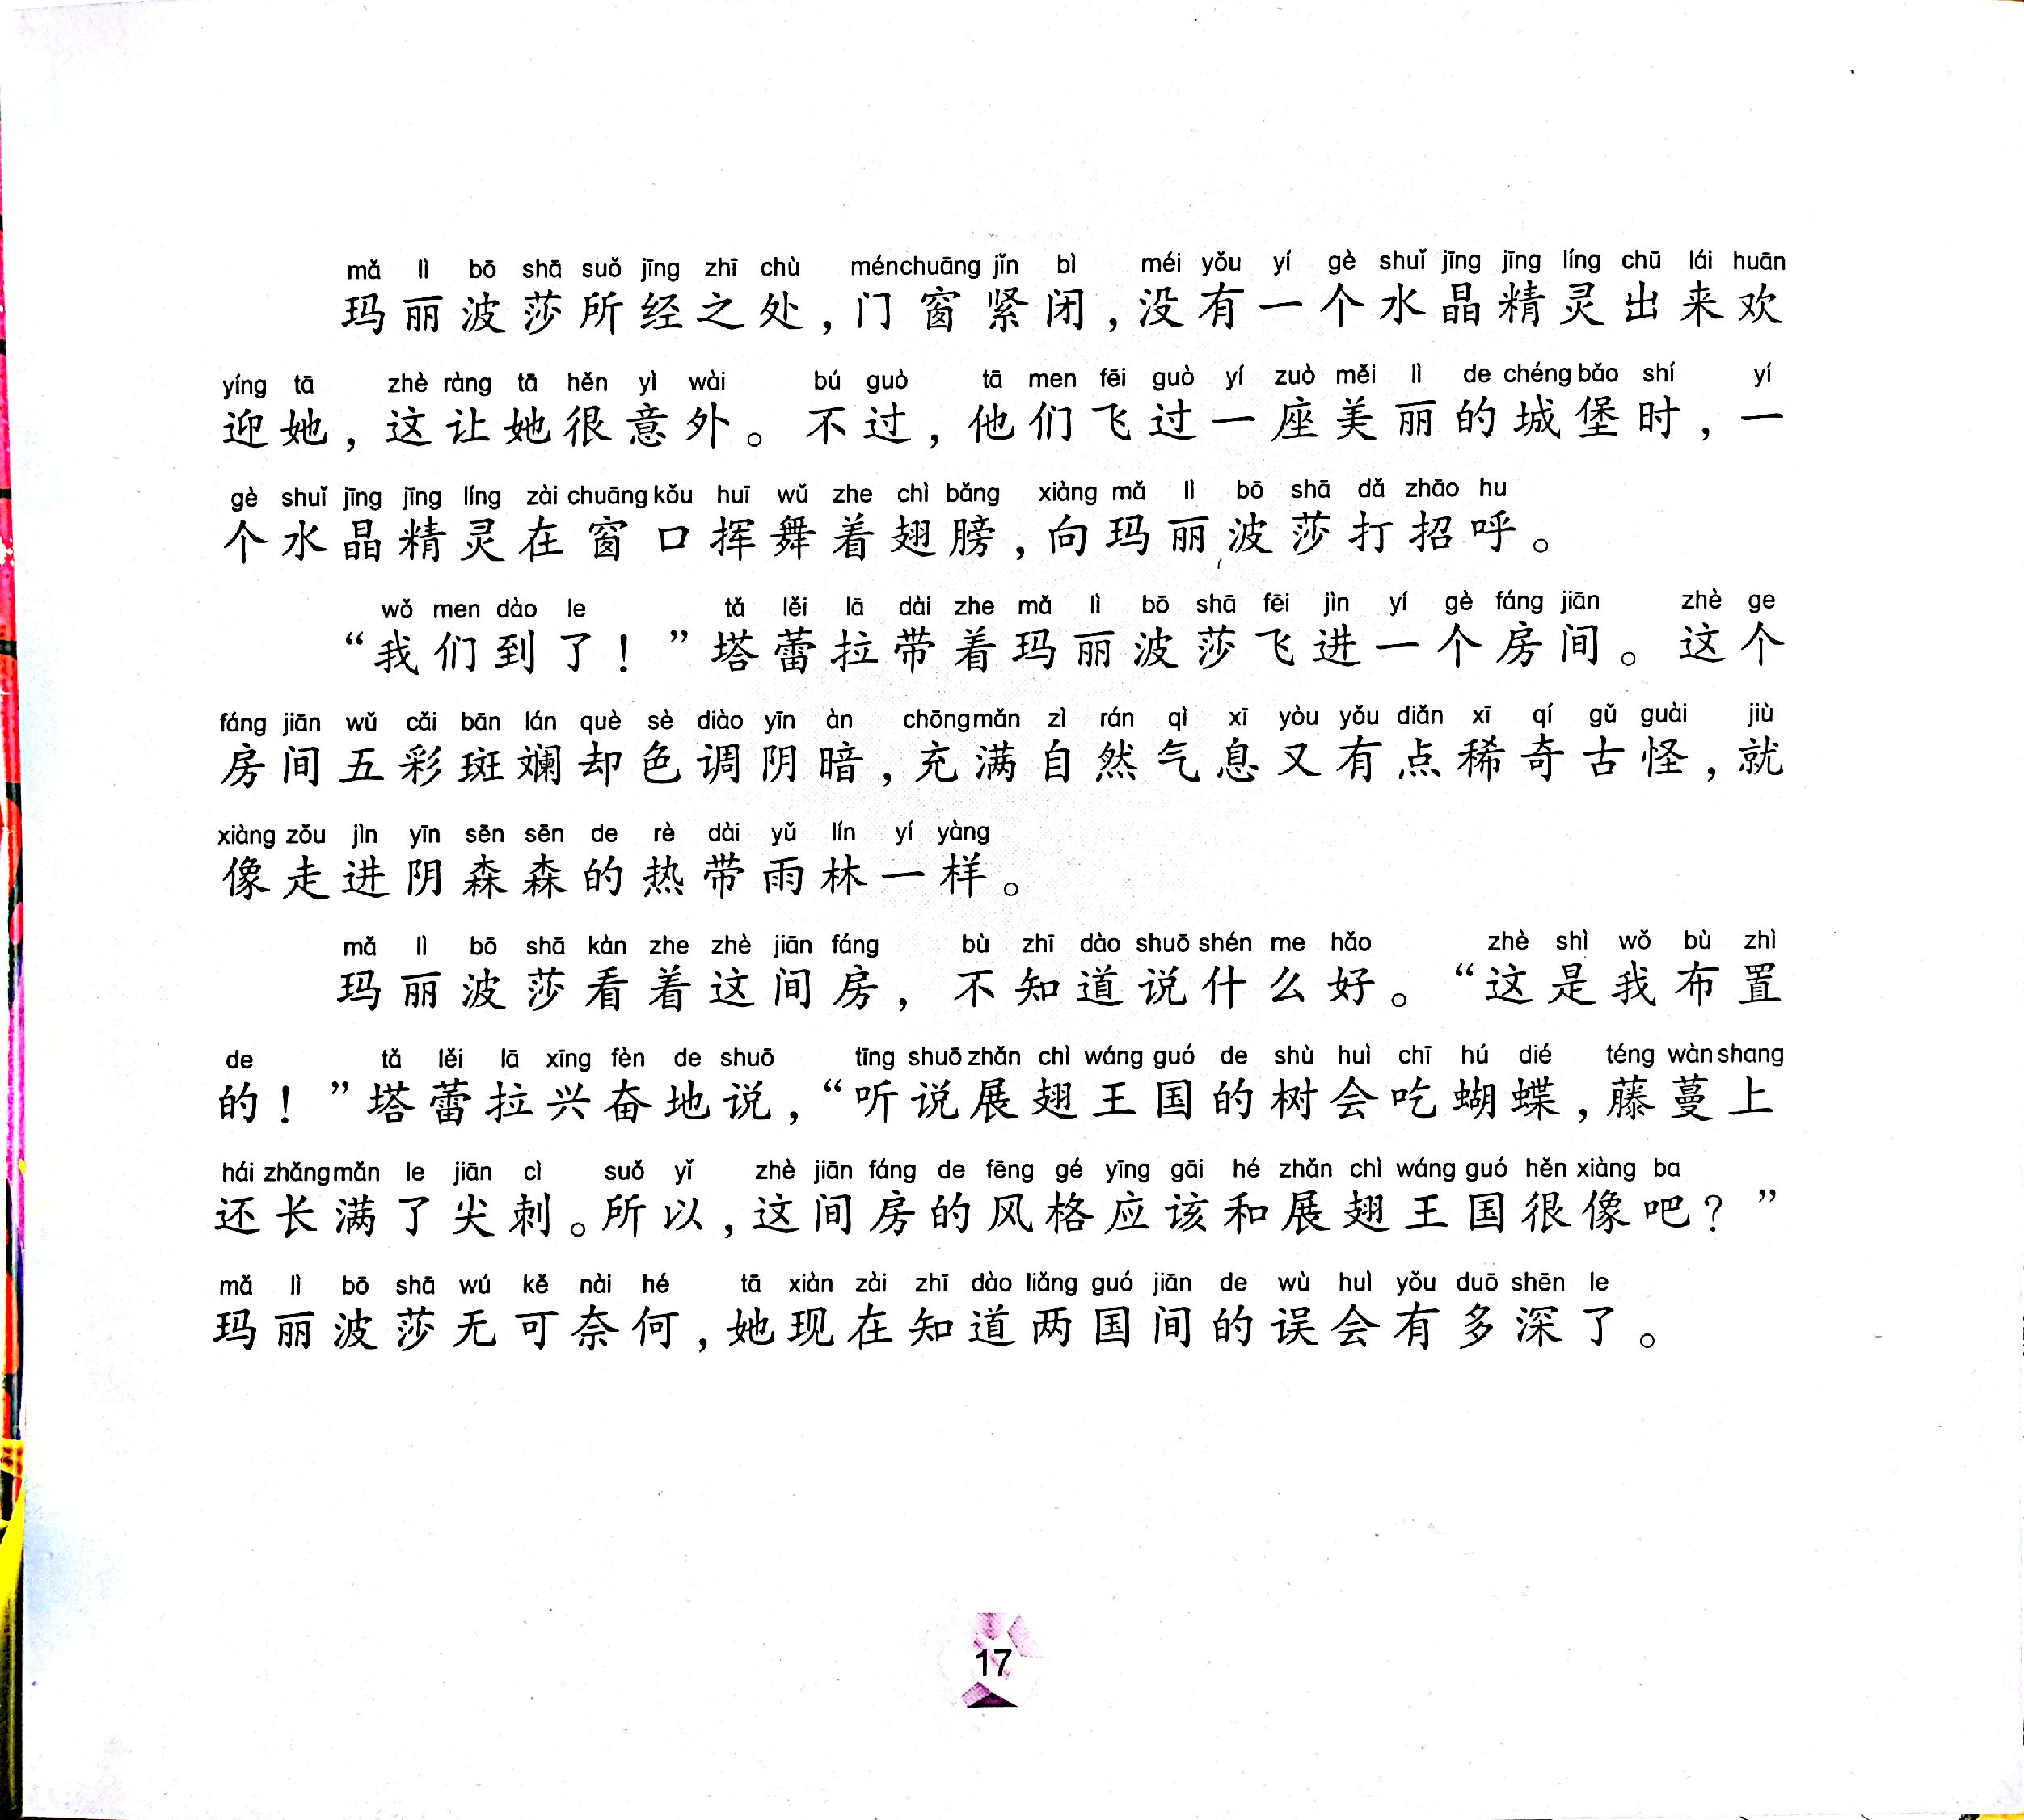 mǎ lì bō shā suǒ jīng zhī chù ménchuāng jǐn bì méi yǒu yí gè shuǐ jīng jīng líng chū lái huān
玛丽波莎所经之处，门窗紧闭，没有一个水晶精灵出来欢
yíng tā zhè ràng tā hěn yì wài bú guò tā men fēi guò yí zuò měi lì de chéng bǎo shí yí
迎她，这让她很意外。不过，他们飞过一座美丽的城堡时，一
gè shuǐ jīng jīng líng zài chuāng kǒu huī wǔ zhe chì bǎng xiàng mǎ lì bō shā dǎ zhāo hu
个水晶精灵在窗口挥舞着翅膀，向玛丽波莎打招呼。
wǒ men dào le tǎ lěi lā dài zhe mǎ lì bō shā fēi jìn yí gè fáng jiān zhè ge
“我们到了！”塔蕾拉带着玛丽波莎飞进一个房间。这个
fáng jiān wǔ cǎi bān lán què sè diào yīn àn chōng mǎn zì rán qì xī yòu yǒu diǎn xī qí gǔ guài jiù
房间五彩斑斓却色调阴暗，充满自然气息又有点稀奇古怪，就
xiàng zǒu jìn yīn sēn sēn de rè dài yǔ lín yí yàng
像走进阴森森的热带雨林一样。
mǎ lì bō shā kàn zhe zhè jiān fáng bù zhī dào shuō shén me hǎo zhè shì wǒ bù zhì
玛丽波莎看着这间房，不知道说什么好。“这是我布置
de tǎ lěi lā xīng fèn de shuō tīng shuō zhǎn chì wáng guó de shù huì chī hú dié téng wàn shang
的！”塔蕾拉兴奋地说，“听说展翅王国的树会吃蝴蝶，藤蔓上
hái zhǎng mǎn le jiān cì suǒ yǐ zhè jiān fáng de fēng gé yīng gāi hé zhǎn chì wáng guó hěn xiàng ba
还长满了尖刺。所以，这间房的风格应该和展翅王国很像吧？”
mǎ lì bō shā wú kě nài hé tā xiàn zài zhī dào liǎng guó jiān de wù huì yǒu duō shēn le
玛丽波莎无可奈何，她现在知道两国间的误会有多深了。
17